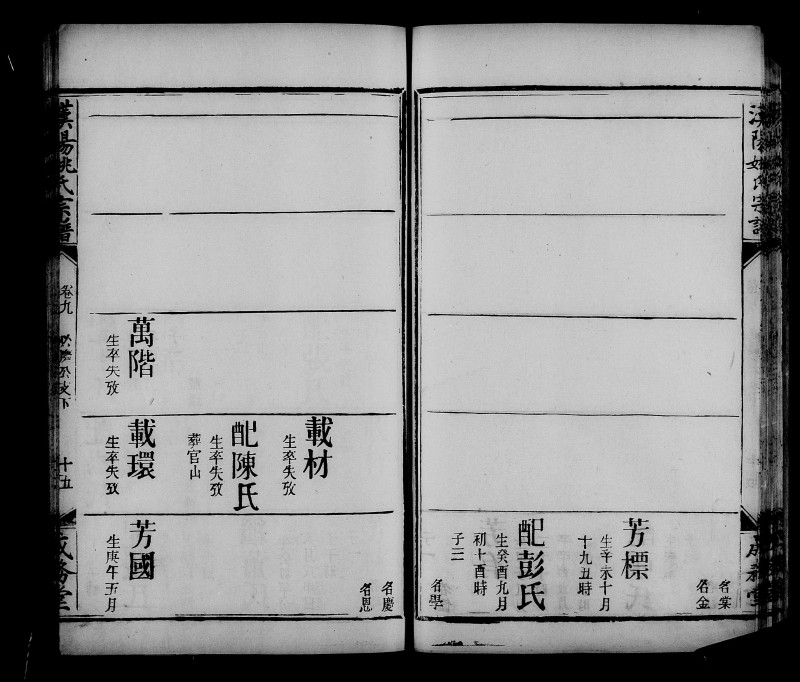 漢陽姚氏宗譜
名棠
名金
芳標
生辛未十月
十九丑時
配彭氏
生癸酉九月
初十酉時
子三
名學
名慶
名恩
載材
生卒失攷
配陳氏
生卒失攷
葬官山
萬階
生卒失攷
載環
生卒失攷
芳國
生庚午五月
漢陽姚氏宗譜
卷九
十五
成務堂